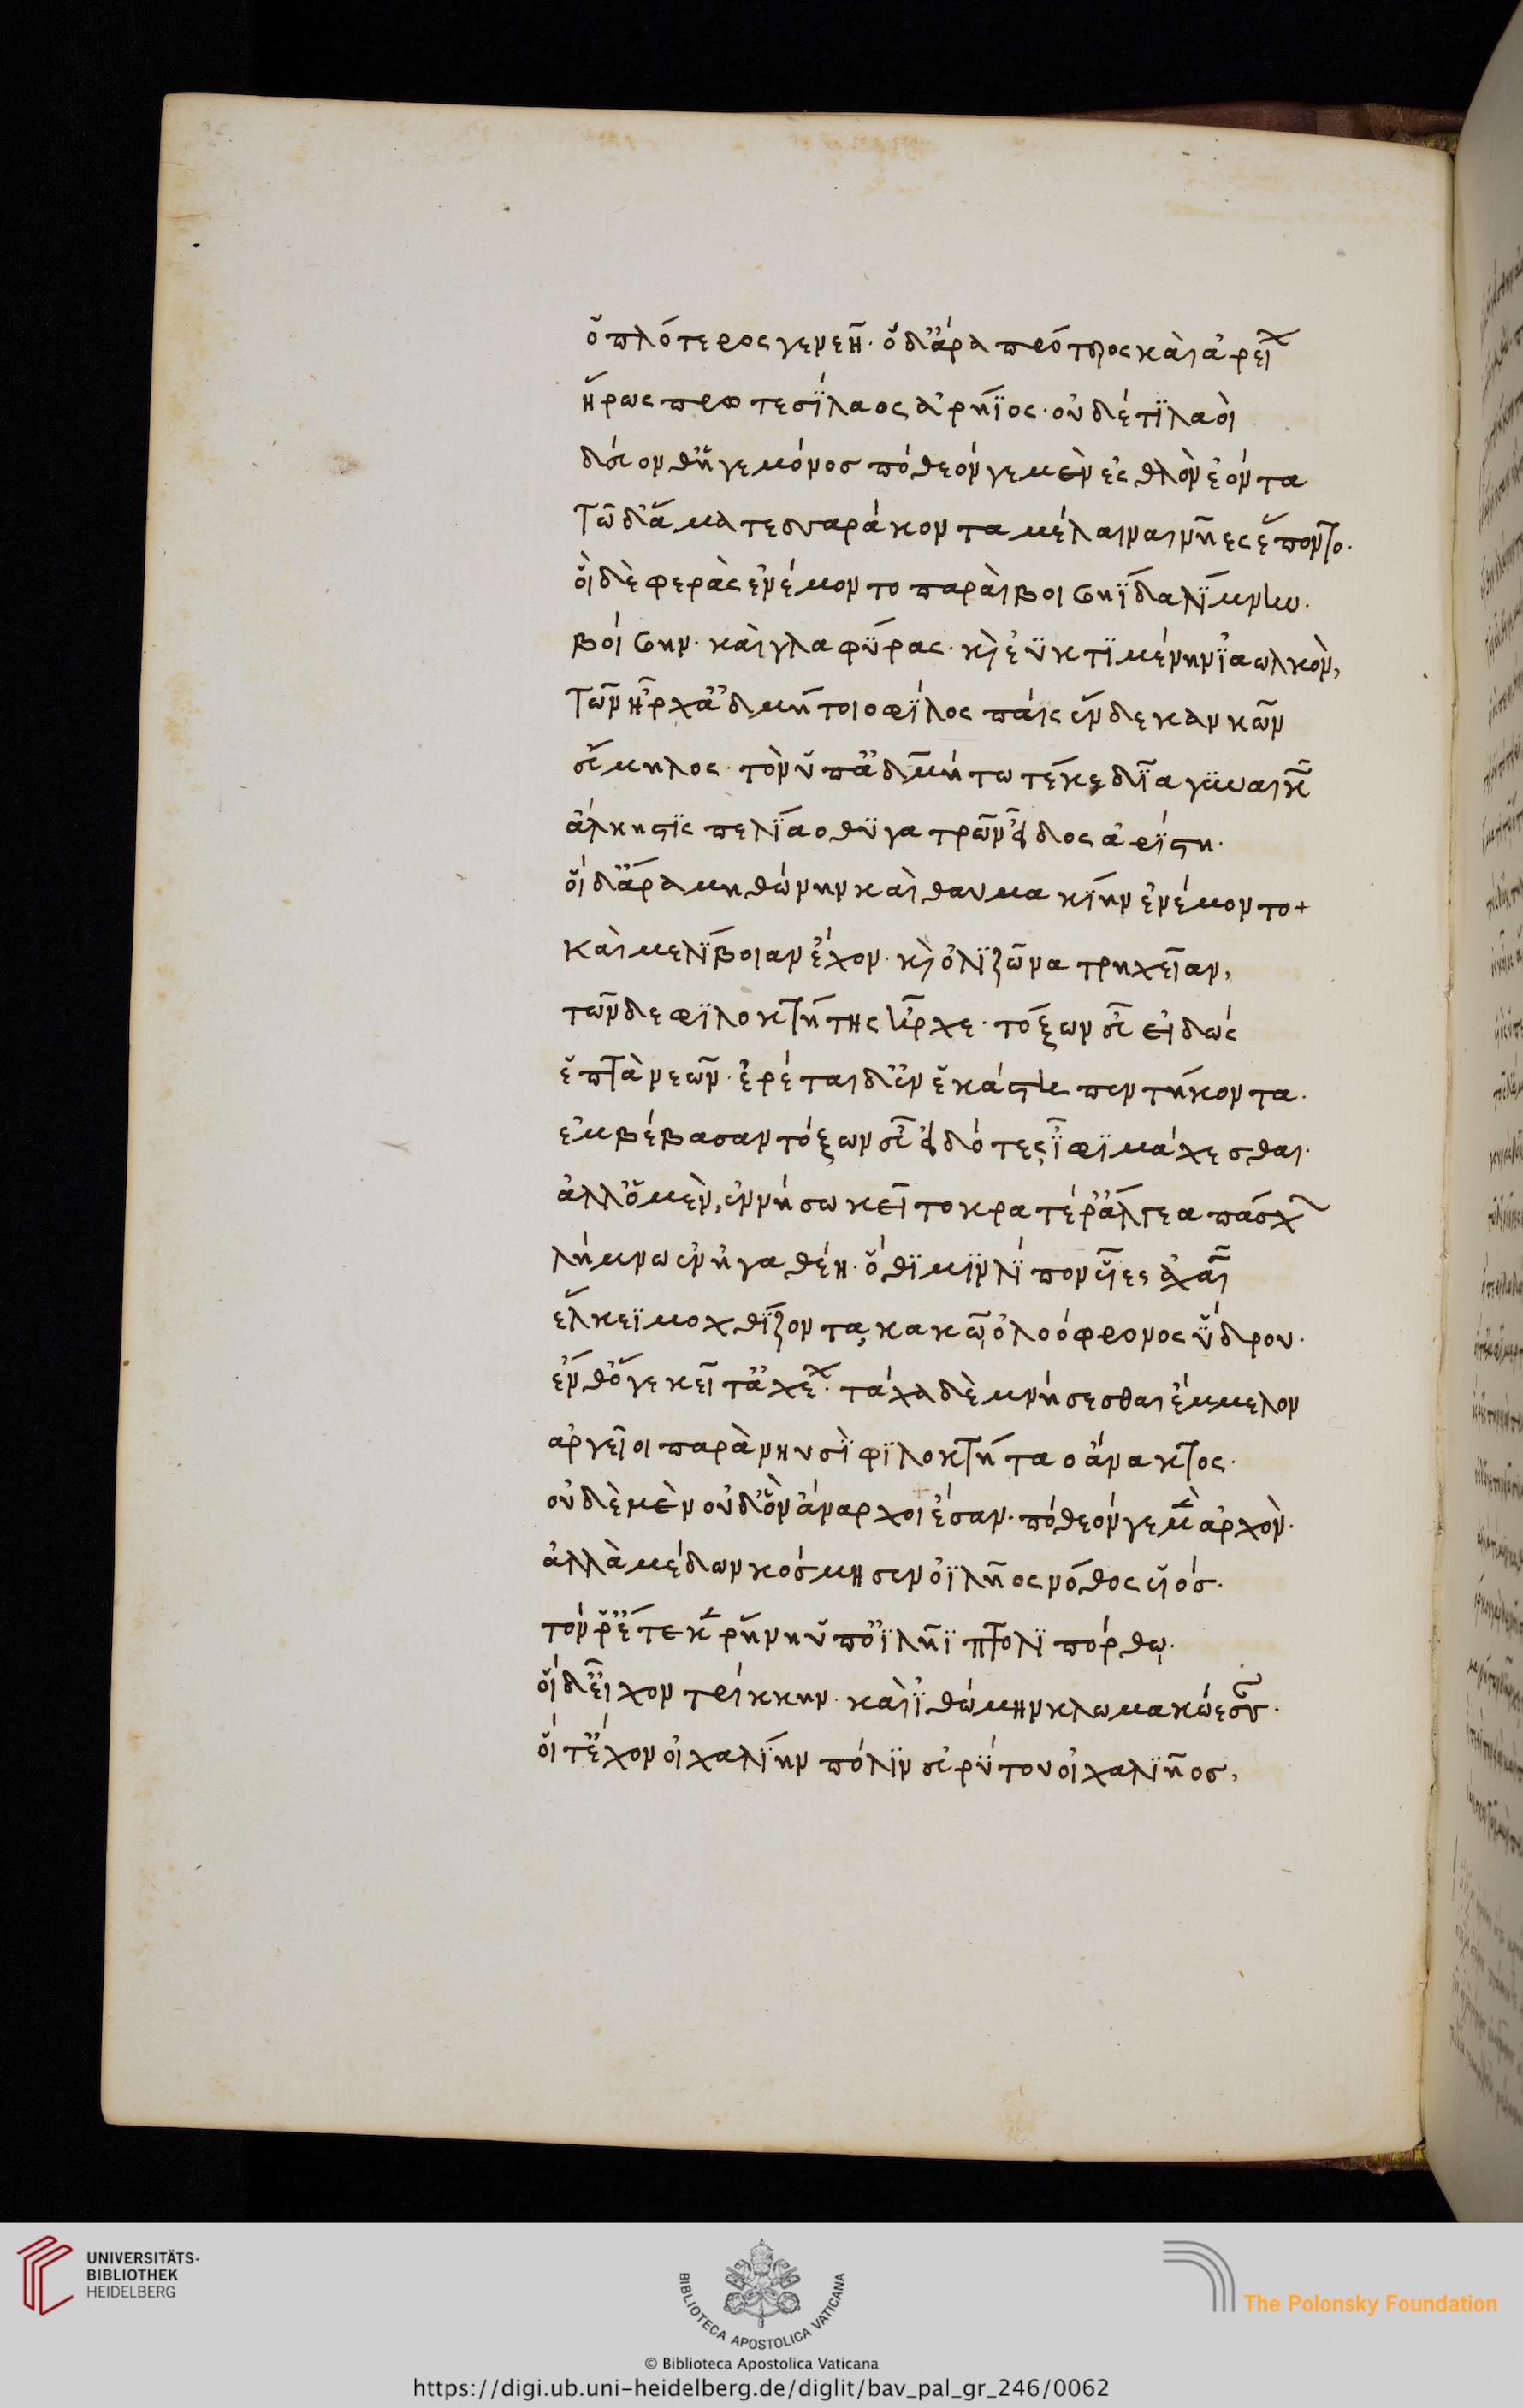 ὁπλότερος γενεῆ· ὁ δ' ἄρα πρότερος καὶ ἀρείων
ἥρως πρωτεσίλαος ἀρήϊος· οὐδέ τι λαοὶ
δεύονθ' ἡγεμόνος πόθεόν γε μὲν ἐσθλὸν ἐόντα
τῶ δ' ἅμα τεσσαράκοντα μέλαιναι νῆες ἕποντο·
οἳ δὲ φερὰς ἐνέμοντο παραὶ βοιβηΐδα λίμνην·
βοίβην· καὶ γλαφύρας· καὶ ἐϋκτιμένην ἰαωλκὸν,
τῶν ἦρχ' ἀδμήτοιο φίλος πάϊς ἕνδεκα νηῶν
εὔμηλος· τὸν ὑπ' ἀδμήτω τέκε δῖα γυναικῶν
ἄλκηστις πελίαο θυγατρῶν εἶδος ἀρίστη·
οἳ δ' ἄρα μηθώνην καὶ θαυμακίην ἐνέμοντο +
καὶ μελίβοιαν ἔχον· καὶ ὀλιζῶνα τρηχεῖαν,
τῶν δε φιλοκτήτης ἦρχε· τόξων εὖ εἰδὼς
ἑπτὰ νεῶν· ἐρέται δ' ἐν ἑκάστη πεντήκοντα·
ἐμβέβασαν τόξων εὖ εἰδότες ἶφι μάχεσθαι·
ἀλλ' ὁ μὲν, ἐν νήσω κεῖτο κρατέρ' ἄλγεα πάσχων
λήμνω ἐν ἠγαθέη· ὅθι μιν λίπον υἷες ἀχαιῶν
ἕλκεϊ μοχθίζοντα, κακῶ ὀλοόφρονος ὕδρου·
ἔνθ' ὅγε κεῖτ' ἀχέων· τάχα δὲ μνήσεσθαι ἔμμελον
ἀργεῖοι παρὰ νηυσὶ φιλοκτήταο ἄνακτος·
οὐδὲ μὲν οὐδ' ὃν ἄναρχοι ἔσαν· πόθεόν γε μὲν ἀρχὸν·
ἀλλὰ μέδων κόσμησεν ὀϊλῆος νόθος υἱός·
τόν ῥ' ἔτεκεν ῥήνη ὑπ' ὀϊλῆϊ πτολιπόρθω·
οἳ δ' εἶχον τρίκκην· καὶ ἰθώμην κλωμακόεσσαν·
οἵ τ' ἔχον οἰχαλίην πόλιν εὐρύτου οἰχαλιῆος,
UNIVERSITÄTS-
BIBLIOTHEK
HEIDELBERG
BIBLIOTECA APOSTOLICA VATICANA
The Polonsky Foundation
© Biblioteca Apostolica Vaticana
https://digi.ub.uni-heidelberg.de/diglit/bav_pal_gr_246/0062